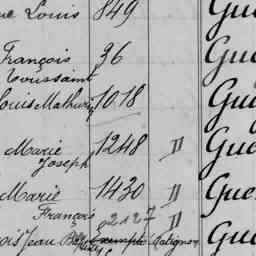 Louis 849 Gu
François
Toussaint 36 Gu
Louis Mathurin 1018 Gu
Marie
Joseph 1248 II Gue
Marie 1430 II Gue
François 2127 II
Jean Bte exempté Matignon Gu